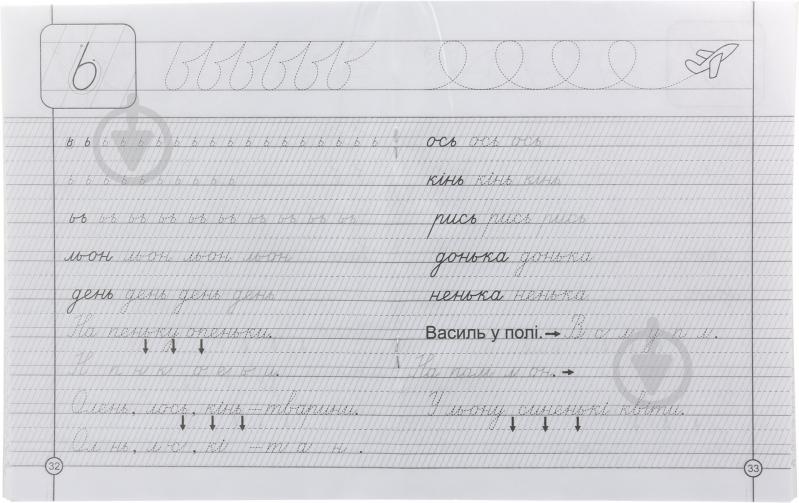 ь
ь ь ь ь ь ь ь ь ь ь ь ь ь ь ь ь ь ь
ь ь ь ь ь ь ь ь ь ь
ьь ьь ьь ьь ьь ьь ьь ьь ьь ьь
льон льон льон льон
день день день день
На пеньку опеньки.
Олень, лось, кінь – тварини.
Ол нь, л с , кі – т а н .
32
ось ось ось
кінь кінь кінь
рись рись рись
донька донька
ненька ненька
Василь у полі.
У льону синенькі квіти.
33